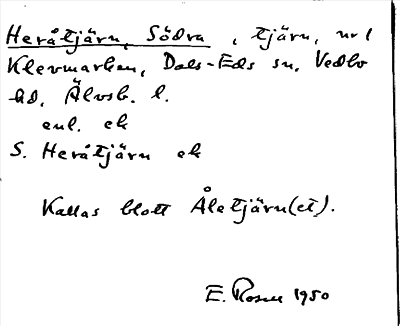 Heråtjärn, Södra, tjärn, nr 1
Klevmarken, Dals-Eds sn, Vedbo
hd, Älvsb. l.
enl. ek
S. Heråtjärn ek
Kallas blott Åletjärn(et).
E. Rosell 1950